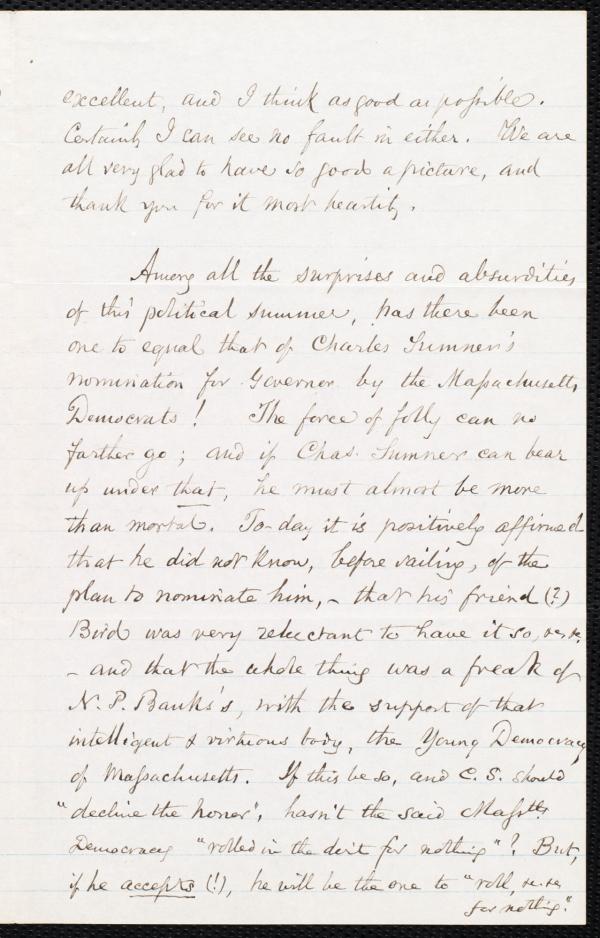 excellent, and I think as good as possible.
Certainly I can see no fault in either. We are
all very glad to have so good a picture, and
thank you for it most heartily.
Among all the surprises and absurdities
of this political summer, has there been
one to equal that of Charles Sumner's
nomination for Governor by the Massachusetts
Democrats! The force of folly can no
farther go; and if Chas. Sumner can bear
up under that, he must almost be more
than mortal. To-day it is positively affirmed
that he did not know, before sailing, of the
plan to nominate him, - that his friend (?)
Bird was very reluctant to have it so, &c. &c.
- and that the whole thing was a freak of
N. P. Banks's, with the support of that
intelligent & virtuous body, the Young Democracy
of Massachusetts. If this be so, and C. S. should
"decline the honor", hasn't the said Masstts.
Democracy "rolled in the dirt for nothing"? But,
if he accepts (!), he will be the one to "roll, &c. &c.
for nothing".